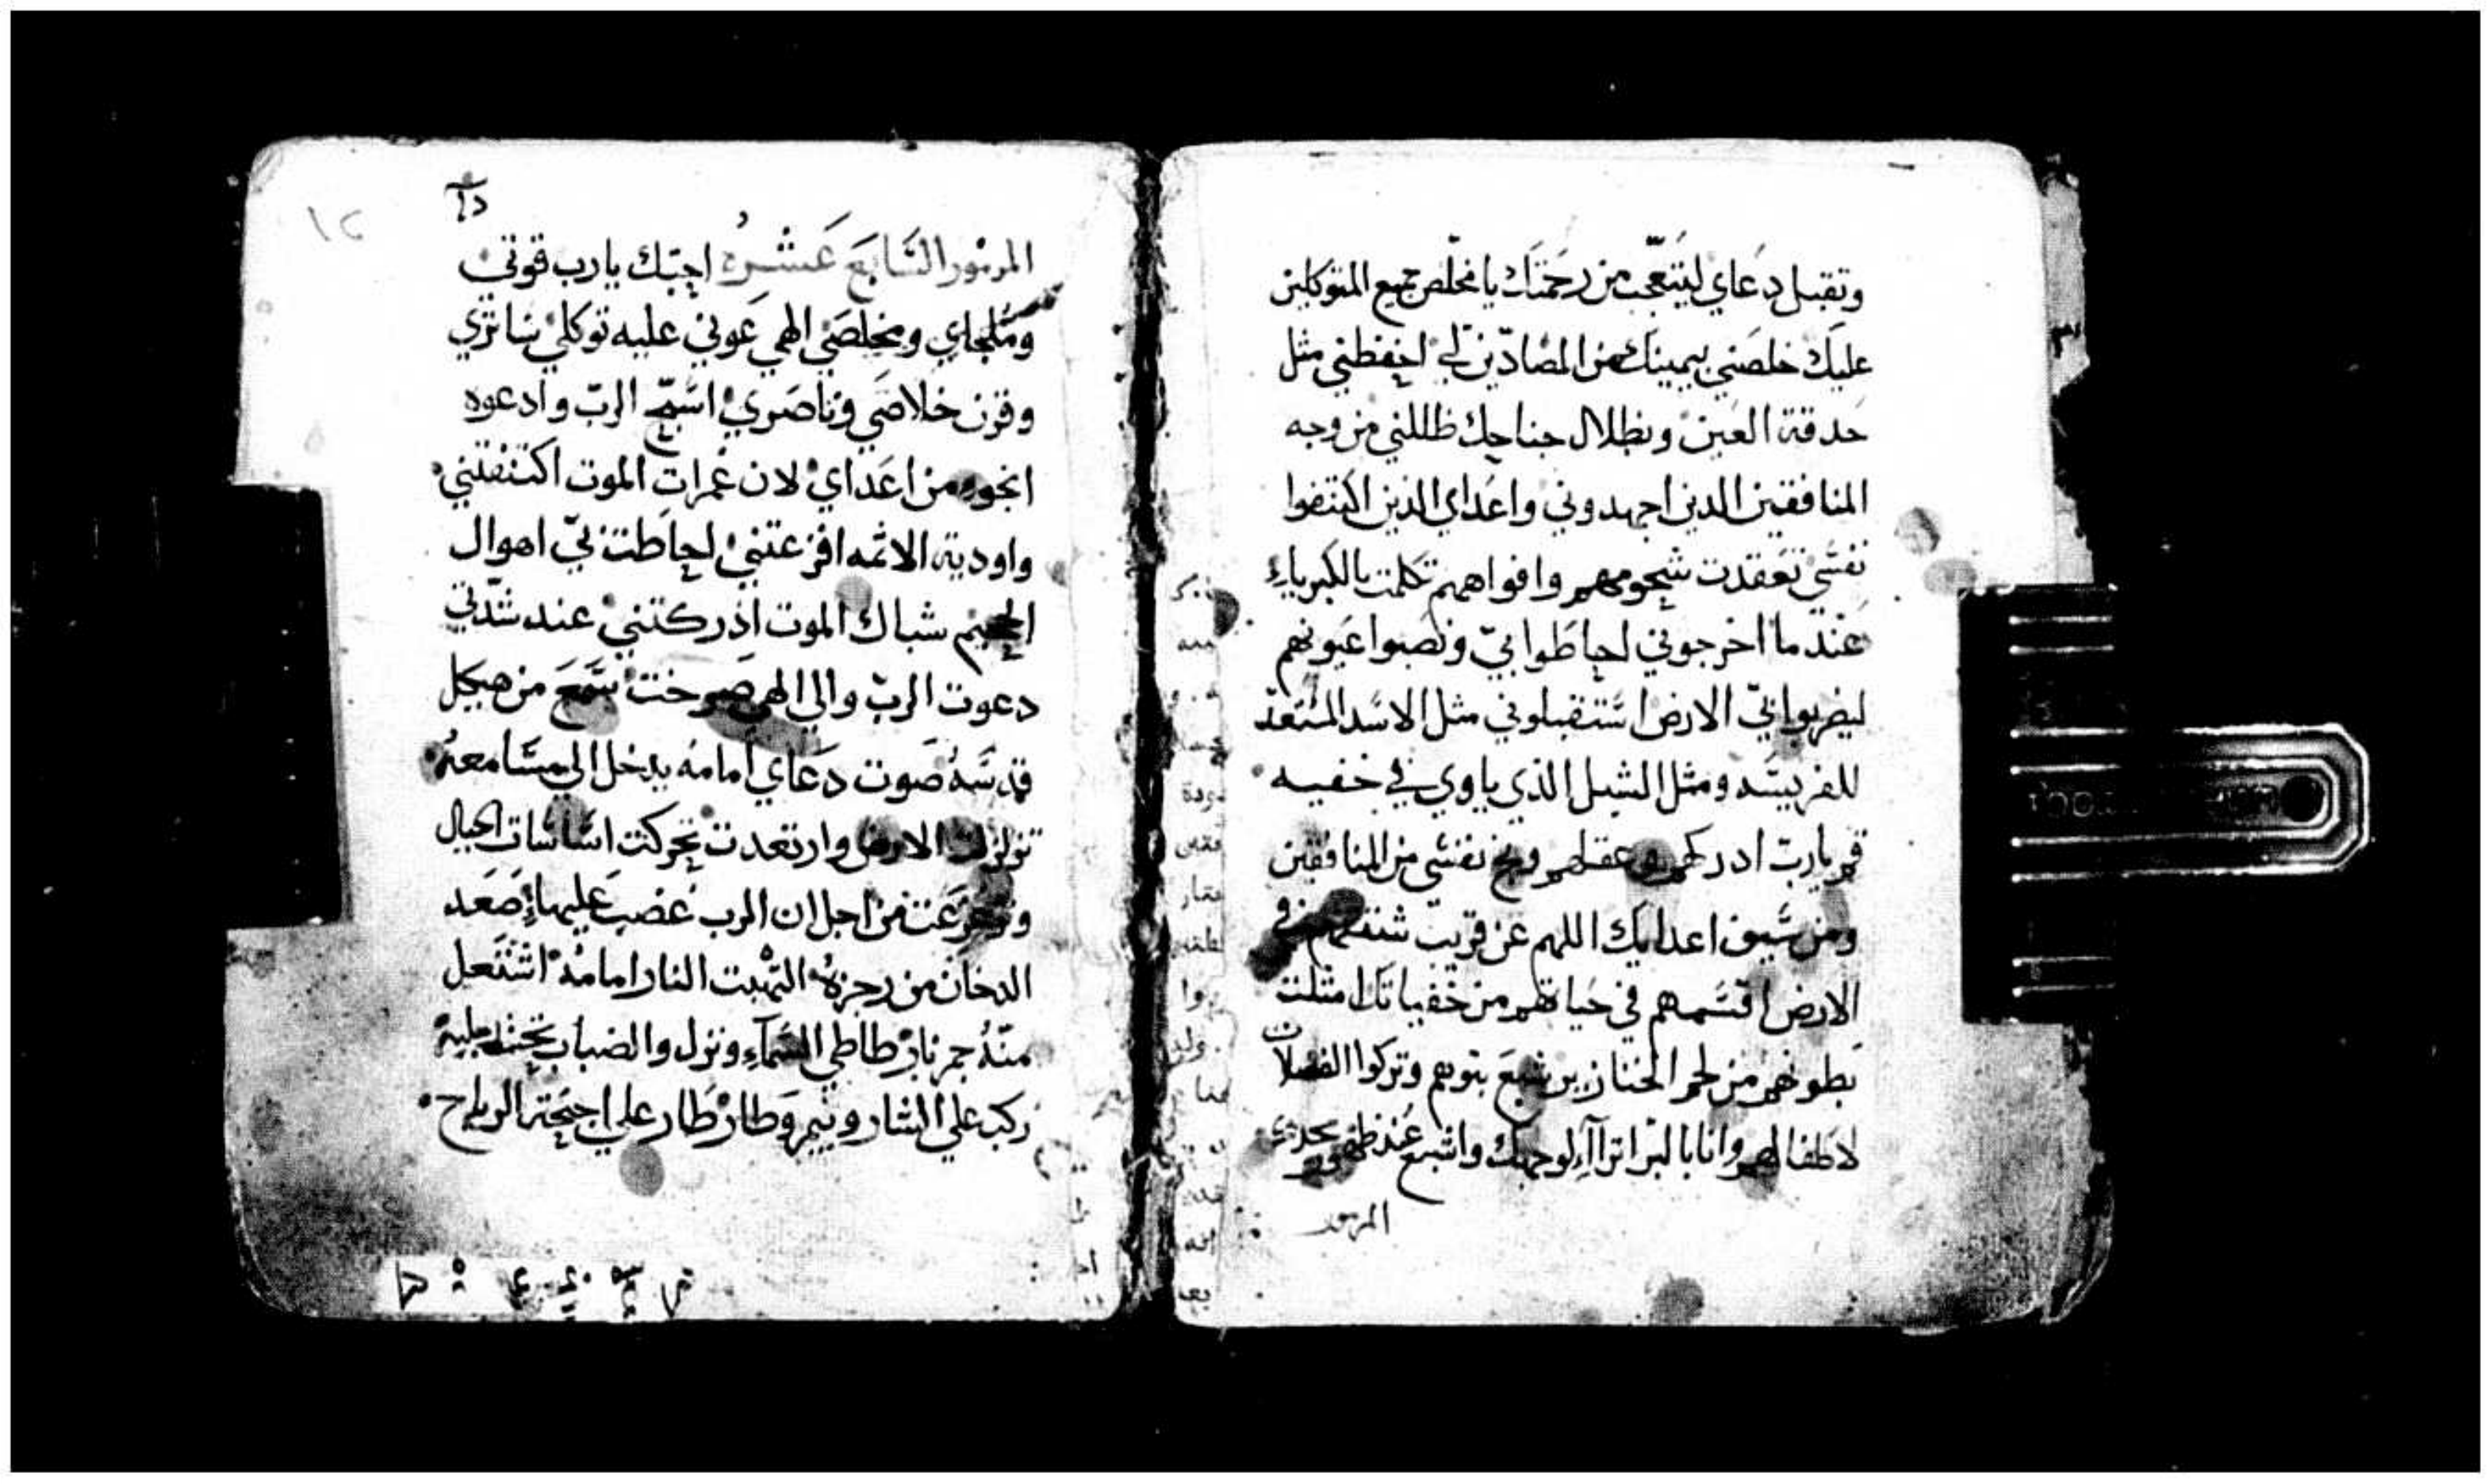 وتقبل دعاي ليتعجب من رحمتك يا مخلص جميع المتوكلين
عليك خلصني بيمينك من المضادين لي احفظني مثل
حدقة العين وبظلال جناحك ظللني من وجه
المنافقين الدين اجهدوني واعداي الذين اكتنفوا
نفسي تعقدت شحومهم وافواههم تكلمت بالكبرياء
عندما اخرجوني احاطوا بي ونصبوا عيونهم
ليضربوا بي الارض استقبلوني مثل الاسد المستعد
للفريسه ومثل الشبل الذي ياوي في خفيه
قم يا رب ادركهم وعقلهم ونج نفسي من المنافقين
ومن سيف اعدايك اللهم عن قريب شتتهم في
الارض اقسمهم في حياتهم من خفياتك امتلت
بطونهم من لحم الخنازير شبع بنوهم وتركوا الفضلات
لاطفالهم وانا بالبر اتراآي لوجهك واشبع عند ظهور مجدك
المزمور
١٢
المزمور السابع عشره احبك يا رب قوتي
وملجاي ومخلصي الهي عوني عليه توكلي ساتري
وقرن خلاصي وناصري اسبح الرب وادعوه
انجو من اعداي لان غمرات الموت اكتنفتني
واودية الاثمه افزعتني احاطت بي اهوال
الجحيم شباك الموت ادركتني عند شدتي
دعوت الرب والي الهي صرخت سمع من هيكل
قدسه صوت دعاي امامه يدخل الي مسامعه
تزلزلت الارض وارتعدت تحركت اساسات الجبال
وتزعزعت من اجل ان الرب غضب عليها صعد
الدخان من رجزه التهبت النار امامه اشتعل
منه جمر نار طاطي السماء ونزل والضباب تحت رجليه
ركب علي الشاروبيم وطار طار علي اجنحة الرياح